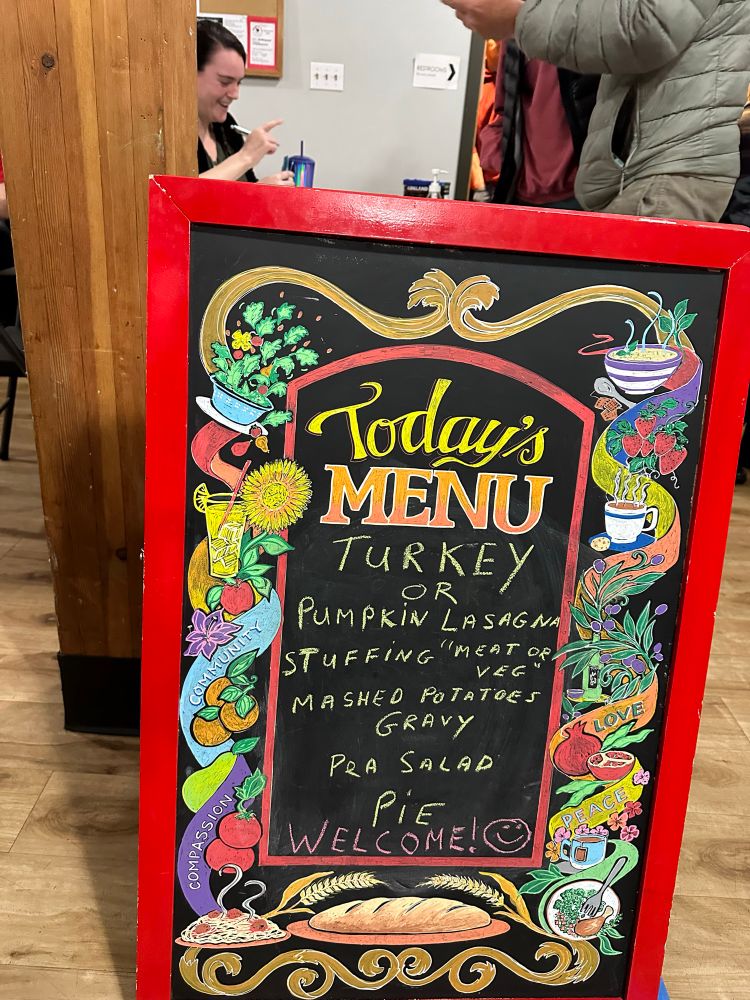 RESTROOMS
KIRKLAND
Today's
MENU
TURKEY
OR
PUMPKIN LASAGNA
STUFFING "MEAT OR
VEG"
MASHED POTATOES
GRAVY
PEA SALAD
PIE
WELCOME!
COMMUNITY
COMPASSION
LOVE
PEACE